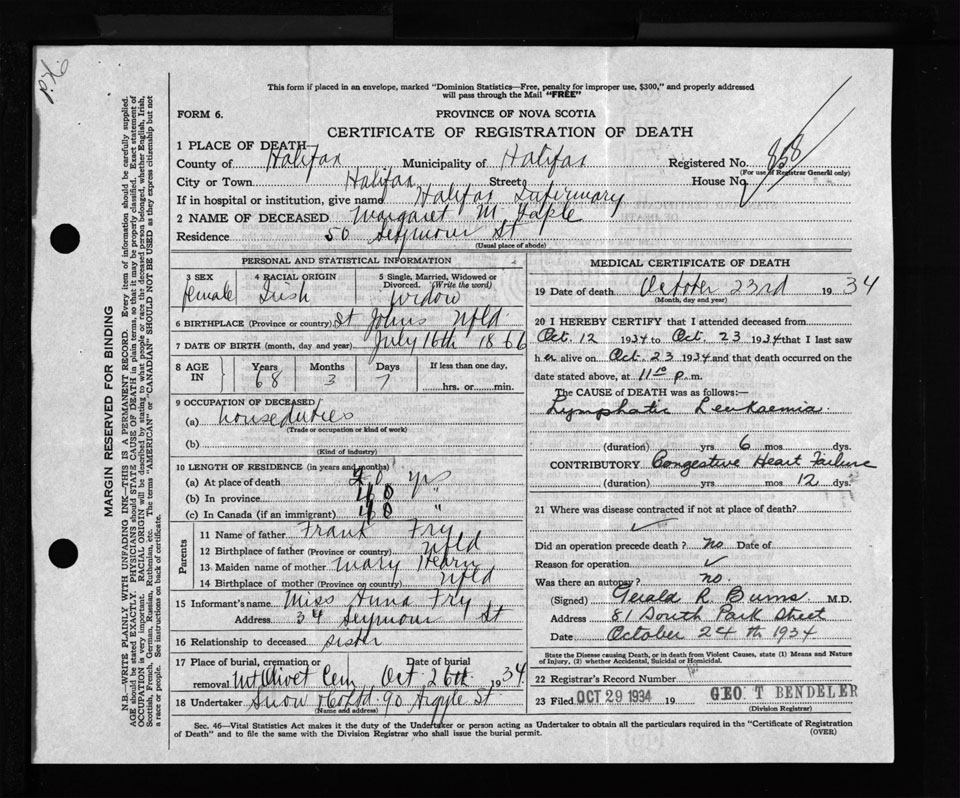 P.K.
This form if placed in an envelope, marked "Dominion Statistics—Free, penalty for improper use, $300," and properly addressed
will pass through the Mail "FREE"
FORM 6. PROVINCE OF NOVA SCOTIA
CERTIFICATE OF REGISTRATION OF DEATH
1 PLACE OF DEATH
County of Halifax Municipality of Halifax Registered No. 858
(For use of Registrar General only)
City or Town Halifax Street House No
If in hospital or institution, give name Halifax Infirmary
2 NAME OF DECEASED Margaret M.
Residence 50 Seymour St
(Usual place of abode)
PERSONAL AND STATISTICAL INFORMATION
3 SEX 4 RACIAL ORIGIN 5 Single, Married, Widowed or
Divorced. (Write the word)
female Irish widow
6 BIRTHPLACE (Province or country) St Johns Nfld.
7 DATE OF BIRTH (month, day and year) July 16th 1866
8 AGE IN Years Months Days If less than one day,
68 3 7 hrs. or min.
9 OCCUPATION OF DECEASED
(a) houseduties
(Trade or occupation or kind of work)
(b)
(Kind of industry)
10 LENGTH OF RESIDENCE (in years and months)
(a) At place of death 40 yrs
(b) In province 40 "
(c) In Canada (if an immigrant) 40 "
Parents
11 Name of father Frank Fry
12 Birthplace of father (Province or country) Nfld
13 Maiden name of mother Mary Hearn
14 Birthplace of mother (Province or country) Nfld
15 Informant's name Miss Anna Fry
Address 34 Seymour St
16 Relationship to deceased sister
17 Place of burial, cremation or removal Mt Olivet Cem Date of burial Oct 26th 1934
18 Undertaker Snow & Co Ltd. 90 Argyle St
(Name and address)
MEDICAL CERTIFICATE OF DEATH
19 Date of death October 23rd 1934
(Month, day and year)
20 I HEREBY CERTIFY that I attended deceased from
Oct. 12 1934 to Oct. 23 1934 that I last saw
h er alive on Oct. 23 1934 and that death occurred on the
date stated above, at 11:50 p.m.
The CAUSE OF DEATH was as follows:—
Lymphatic Leukaemia.
(duration) yrs 6 mos dys.
CONTRIBUTORY Congestive Heart Failure
(duration) yrs mos 12 dys.
21 Where was disease contracted if not at place of death?
Did an operation precede death? no Date of
Reason for operation
Was there an autopsy? no.
(Signed) Gerald R. Burns M.D.
Address 81 South Park Street
Date October 24th 1934
State the Disease causing Death, or in death from Violent Causes, state (1) Means and Nature
of Injury, (2) whether Accidental, Suicidal or Homicidal.
22 Registrar's Record Number
23 Filed OCT 29 1934 19 GEO. T BENDELER
(Division Registrar)
Sec. 46—Vital Statistics Act makes it the duty of the Undertaker or person acting as Undertaker to obtain all the particulars required in the "Certificate of Registration
of Death" and to file the same with the Division Registrar who shall issue the burial permit. (OVER)
MARGIN RESERVED FOR BINDING
N.B.—WRITE PLAINLY WITH UNFADING INK—THIS IS A PERMANENT RECORD. Every item of information should be carefully supplied.
AGE should be stated EXACTLY. PHYSICIANS should STATE CAUSE OF DEATH in plain terms, so that it may be properly classified. Exact statement of
OCCUPATION is very important. RACIAL ORIGIN will be described by stating to what people or race the deceased person belonged, whether English, Irish,
Scottish, French, German, Russian, Ruthenian, etc. The terms "AMERICAN" or "CANADIAN" SHOULD NOT BE USED as they express citizenship but not
a race or people. See instructions on back of certificate.